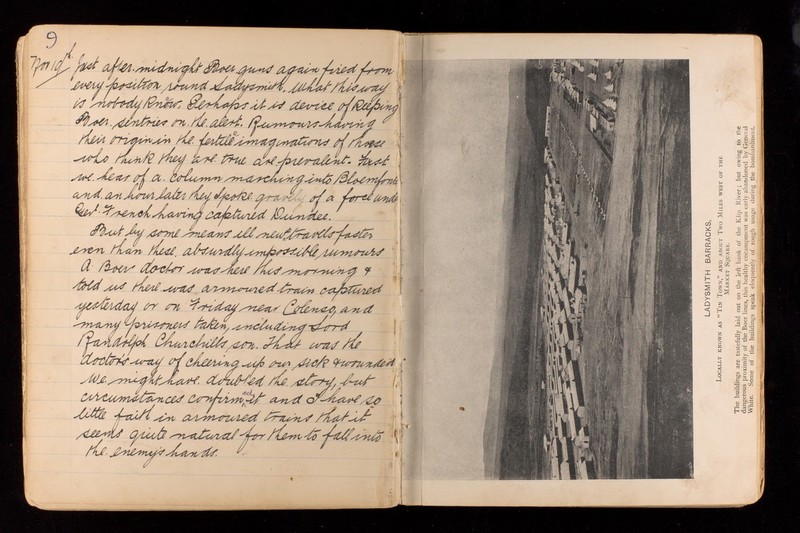 9
Nov 19th. Just after midnight Boer guns again fired from
every position round Ladysmith. What this way
is nobody knows. Perhaps it is device of keeping
Boer sentries on the alert. Rumours having
their origin in the fertile imaginations of those
who think they are true are prevalent. First
we hear of a column marching into Bloemfontein
and an hour later they spoke gravely of a force under
Genl. French having captured Dundee.
But by some means ill news travels faster
even than these absurdly impossible rumours
A Boer doctor was here this morning &
told us there was armoured train captured
yesterday or on Friday near Colenso, and
many prisoners taken, including Lord
Randolph Churchills son. That was the
doctors way of cheering up our sick & wounded
We might have doubted the story, but
circumstances confirmed it and I have so
little faith in armoured trains that it
seems quite natural for them to fall into
the enemys hands.
LADYSMITH BARRACKS.
Locally known as "Tin Town," and about Two Miles west of the
Market Square.
The buildings are tastefully laid out on the left bank of the Klip River; but owing to the
dangerous proximity of the Boer lines, this healthy encampment was early abandoned by General
White. Some of the buildings speak eloquently of rough usage during the bombardment.